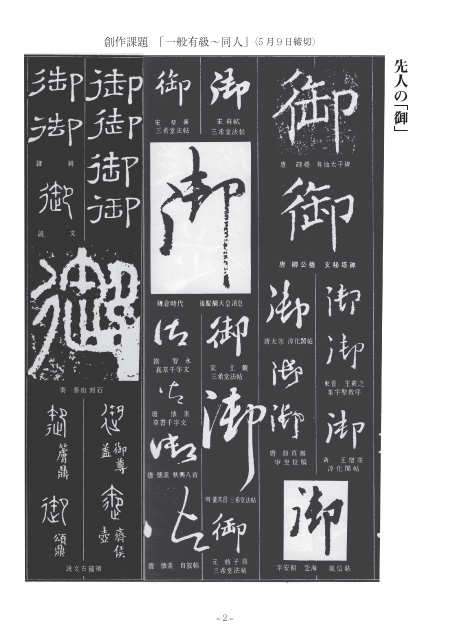 創作課題 「一般有級~同人」(5月9日締切)
先人の「御」
御
唐 薛稷 昇仙太子碑
御
唐 柳公権 玄秘塔碑
御
唐太宗 淳化閣帖
御
御
唐 顔真卿
争坐位稿
御
御
東晋 王羲之
集字聖教序
御
斉 王僧虔
淳化閣帖
御
平安朝 空海 風信帖
御
三希堂法帖
御
宋 蘇軾
三希堂法帖
御
鎌倉時代 後醍醐天皇消息
御
隋 智永
真草千字文
御
唐 懐素
草書千字文
御
唐 懐素 秋興八首
御
唐 懐素 自叙帖
御
三希堂法帖
御
明 董其昌 三希堂法帖
御
元 趙子昂
三希堂法帖
御
御
御
御
御
御
隷辨
御
説文
御
秦 泰山刻石
御
御尊
蓋
御
齊侯
壺
御
鼎
御
頌鼎
説文古籀補
-2-